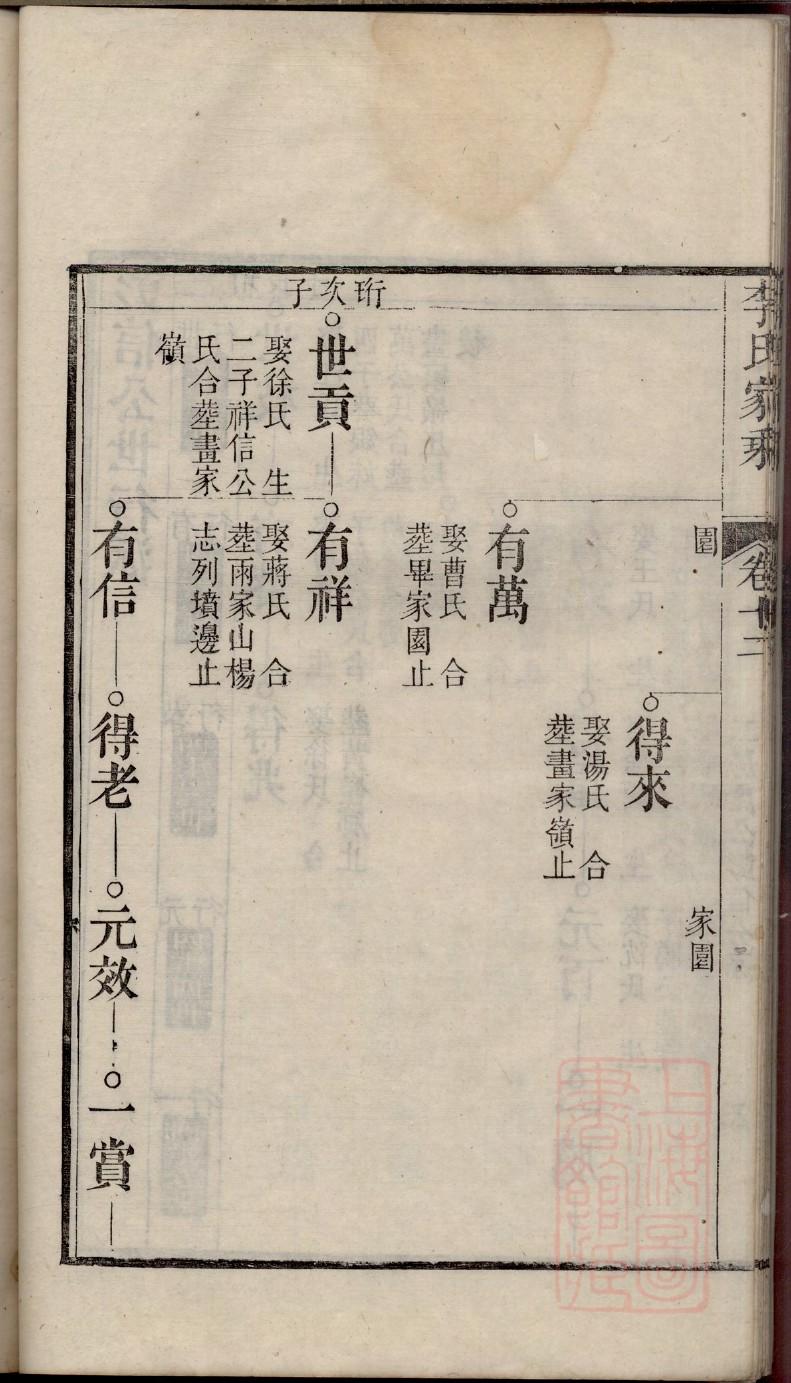 李氏家乘
卷十二
園
家園
得來
娶湯氏 合
塟畫家嶺止
有萬
娶曹氏 合
塟畢家園止
珩次子
世貢
娶徐氏 生
二子祥信公
氏合塟畫家
嶺
有祥
娶蔣氏 合
塟雨家山楊
志列墳邊止
有信
得老
元效
一賞
上海圖
書館藏